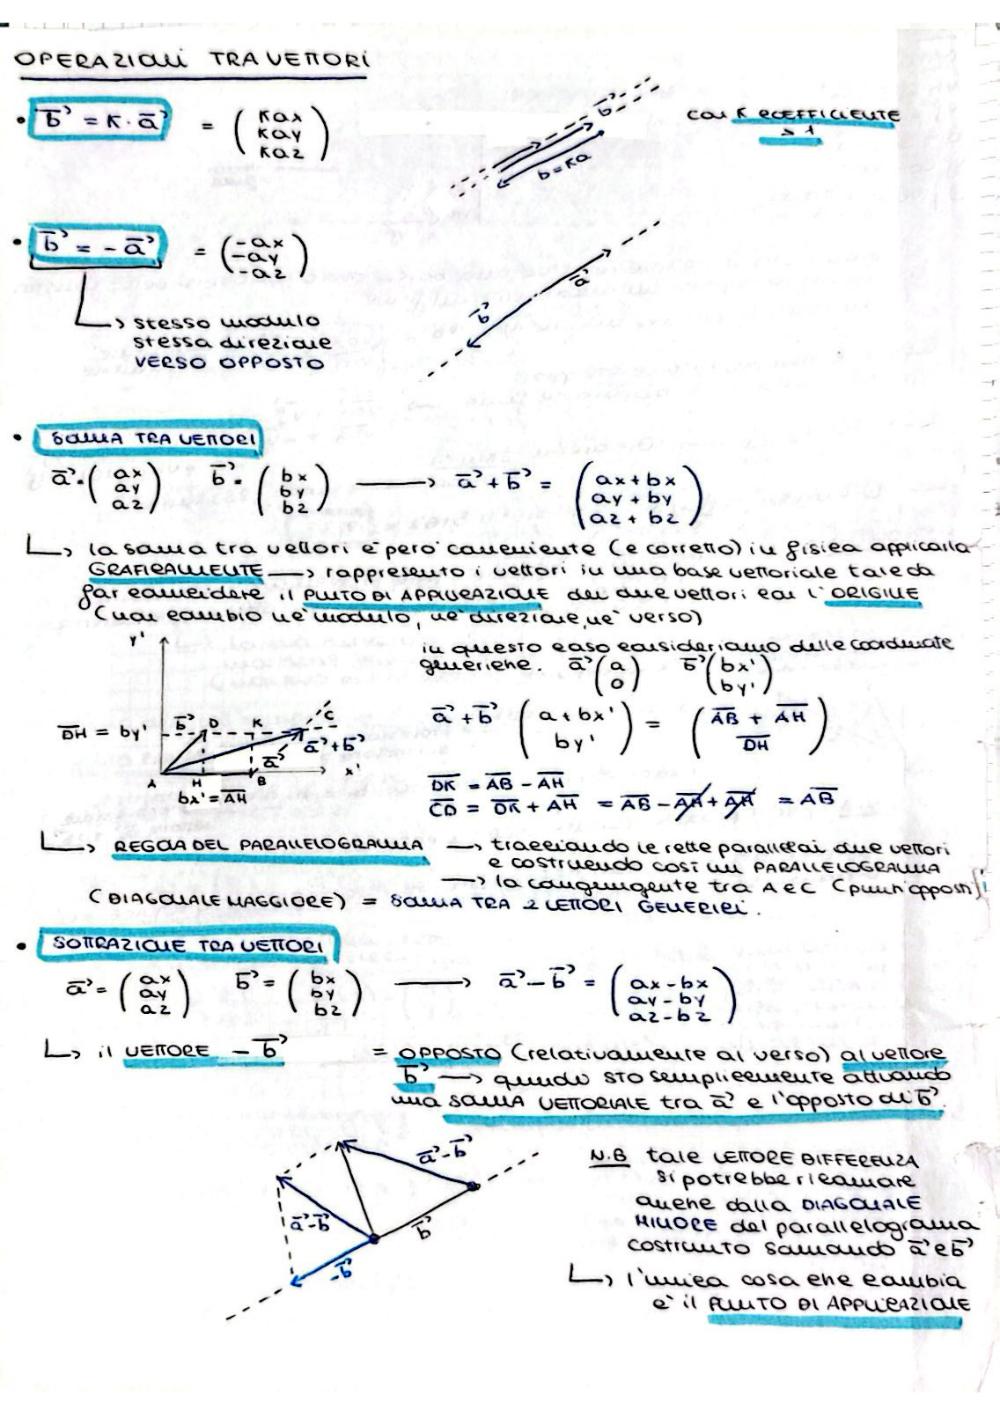 OPERAZIONI TRA VETTORI
• b⃗ = K · a⃗ = (Kax
Kay
Kaz)
b⃗
b = Ka
con K COEFFICIENTE
> 1
• b⃗ = - a⃗ = (-ax
-ay
-az)
a⃗
b⃗
↳ stesso modulo
stessa direzione
VERSO OPPOSTO
• SOMMA TRA VETTORI
a⃗ = (ax
ay
az) b⃗ = (bx
by
bz) → a⃗ + b⃗ = (ax + bx
ay + by
az + bz)
↳ la somma tra vettori e' pero' conveniente (e corretto) in fisica applicarla
GRAFICAMENTE → rappresento i vettori in una base vettoriale tale da
far coincidere il PUNTO DI APPLICAZIONE dei due vettori con l'ORIGINE
(non cambio ne' modulo, ne' direzione, ne' verso)
in questo caso consideriamo delle coordinate
generiche. a⃗ (a
0) b⃗ (bx'
by')
y'
DH = by'
b⃗ D K C
a⃗ + b⃗
a⃗
A H B x'
bx' = AH
a⃗ + b⃗ (a + bx'
by') = (AB + AH
DH)
DK = AB - AH
CD = DK + AH = AB - AH + AH = AB
↳ REGOLA DEL PARALLELOGRAMMA → tracciando le rette parallele ai due vettori
e costruendo così un PARALLELOGRAMMA
→ la congiungente tra A e C (punti opposti)
(DIAGONALE MAGGIORE) = SOMMA TRA 2 VETTORI GENERICI.
• SOTTRAZIONE TRA VETTORI
a⃗ = (ax
ay
az) b⃗ = (bx
by
bz) → a⃗ - b⃗ = (ax - bx
ay - by
az - bz)
↳ il VETTORE - b⃗ = OPPOSTO (relativamente al verso) al vettore
b⃗ → quindi sto semplicemente attuando
una SOMMA VETTORIALE tra a⃗ e l'opposto di b⃗.
a⃗ - b⃗
a⃗ - b⃗
b⃗
-b⃗
N.B tale VETTORE DIFFERENZA
si potrebbe ricavare
anche dalla DIAGONALE
MINORE del parallelogrammo
costruito sommando a⃗ e b⃗
↳ l'unica cosa che cambia
e' il PUNTO DI APPLICAZIONE